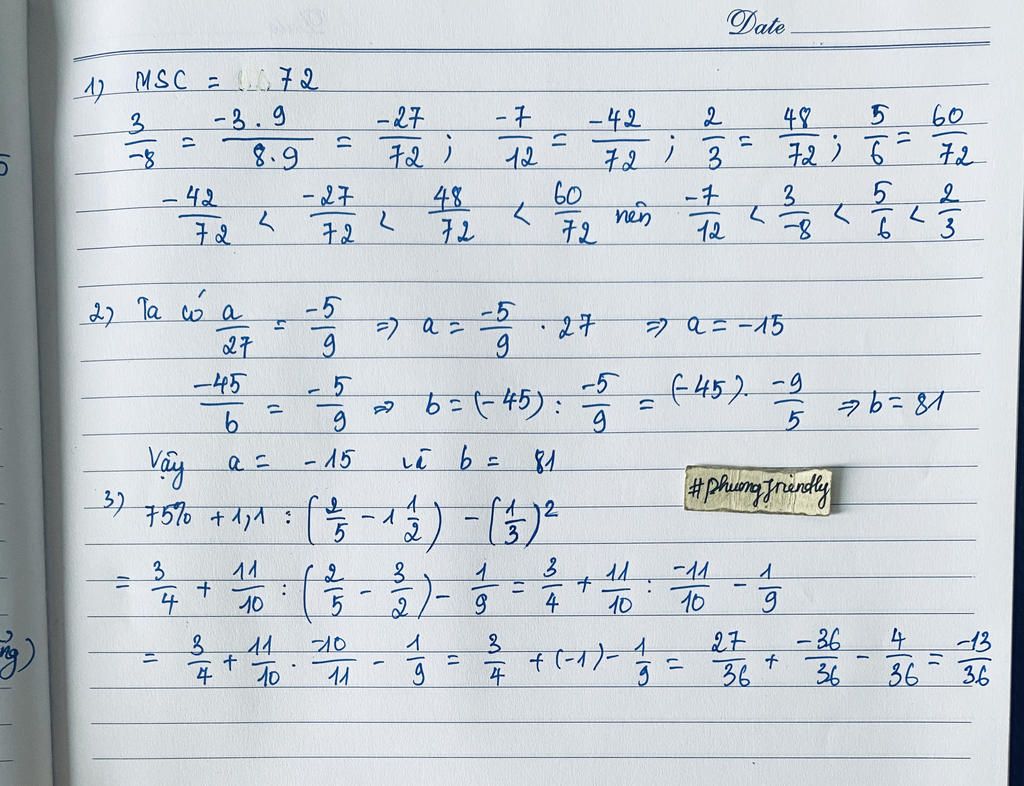 Date
1) MSC = 72
3/-8 = -3.9/8.9 = -27/72 ; -7/12 = -42/72 ; 2/3 = 48/72 ; 5/6 = 60/72
-42/72 < -27/72 < 48/72 < 60/72 nên -7/12 < 3/-8 < 5/6 < 2/3
2) Ta có a/27 = -5/9 => a = -5/9 . 27 => a = -15
-45/b = -5/9 => b = (-45) : -5/9 = (-45). -9/5 => b = 81
Vậy a = -15 và b = 81
#phuongfriendly
3) 75% + 1,1 : (2/5 - 1 1/2) - (1/3)²
= 3/4 + 11/10 : (2/5 - 3/2) - 1/9 = 3/4 + 11/10 : -11/10 - 1/9
= 3/4 + 11/10 . -10/11 - 1/9 = 3/4 + (-1) - 1/9 = 27/36 + -36/36 - 4/36 = -13/36